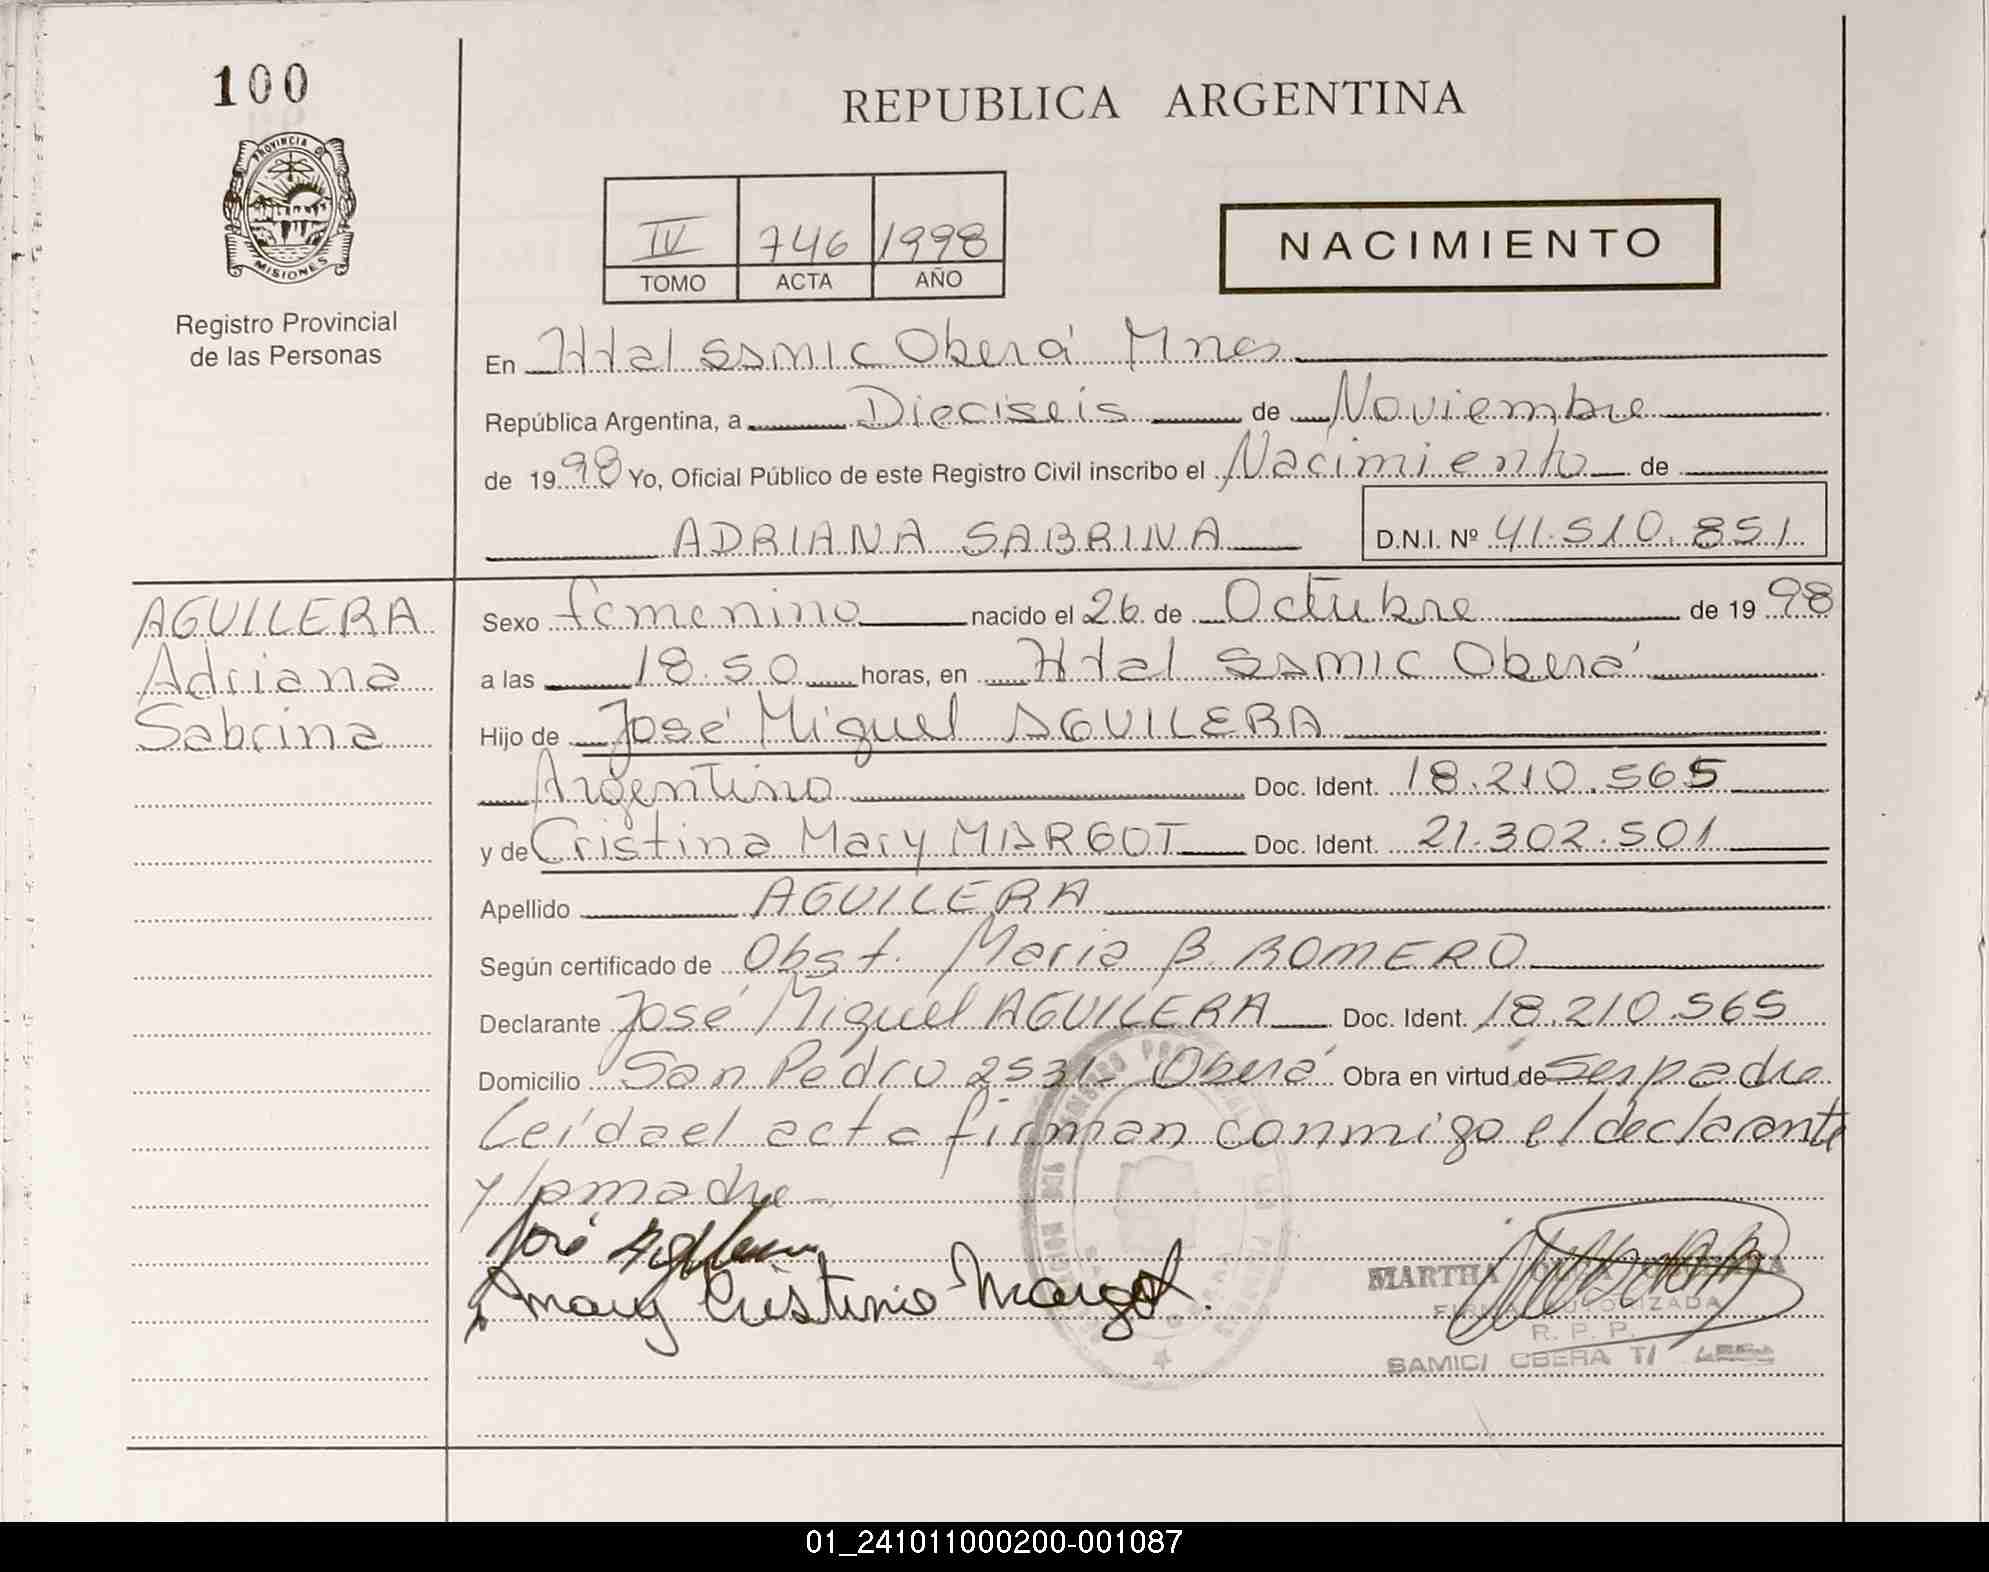 100
REPUBLICA ARGENTINA
PROVINCIA D
MISIONES
Registro Provincial
de las Personas
IV 746 1998
TOMO ACTA AÑO
NACIMIENTO
En Htal SSMIC Oberá Mnes
República Argentina, a Dieciseis de Noviembre
de 1998 Yo, Oficial Público de este Registro Civil inscribo el Nacimiento de
ADRIANA SABRINA D.N.I. Nº 41.510.851
AGUILERA
Adriana
Sabrina
Sexo femenino nacido el 26 de Octubre de 1998
a las 18.50 horas, en Htal SSMIC Oberá
Hijo de José Miguel AGUILERA
Argentino Doc. Ident. 18.210.565
y de Cristina Mary MARGOT Doc. Ident. 21.302.501
Apellido AGUILERA
Según certificado de Obst. Maria B. ROMERO
Declarante José Miguel AGUILERA Doc. Ident. 18.210.565
Domicilio San Pedro 2531- Oberá Obra en virtud de ser padre
Leída el acta firman conmigo el declarante
y la madre-
José
Mary Cristina Margot.
MARTHA
FIRMA AUTORIZADA
R. P. P.
SAMIC/ OBERA
01_241011000200-001087